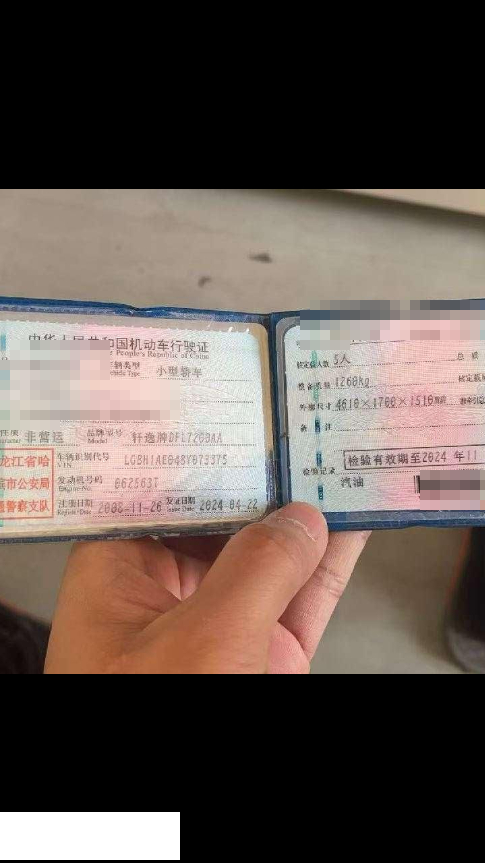 中华人民共和国机动车行驶证
People's Republic of China
车辆类型
小型轿车
非营运
品牌型号
Model
轩逸牌DFL7200AA
龙江省哈
市公安局
警察支队
车辆识别代号
VIN
LGBH1AE048Y073375
发动机号码
Engine No.
062563T
注册日期
Register Date
2008-11-26
发证日期
Issue Date
2024-04-22
核定载人数
5人
总质
整备质量
1260kg
核定载质
外廓尺寸
4610×1700×1510mm
备注
检验记录
检验有效期至2024 年11
汽油